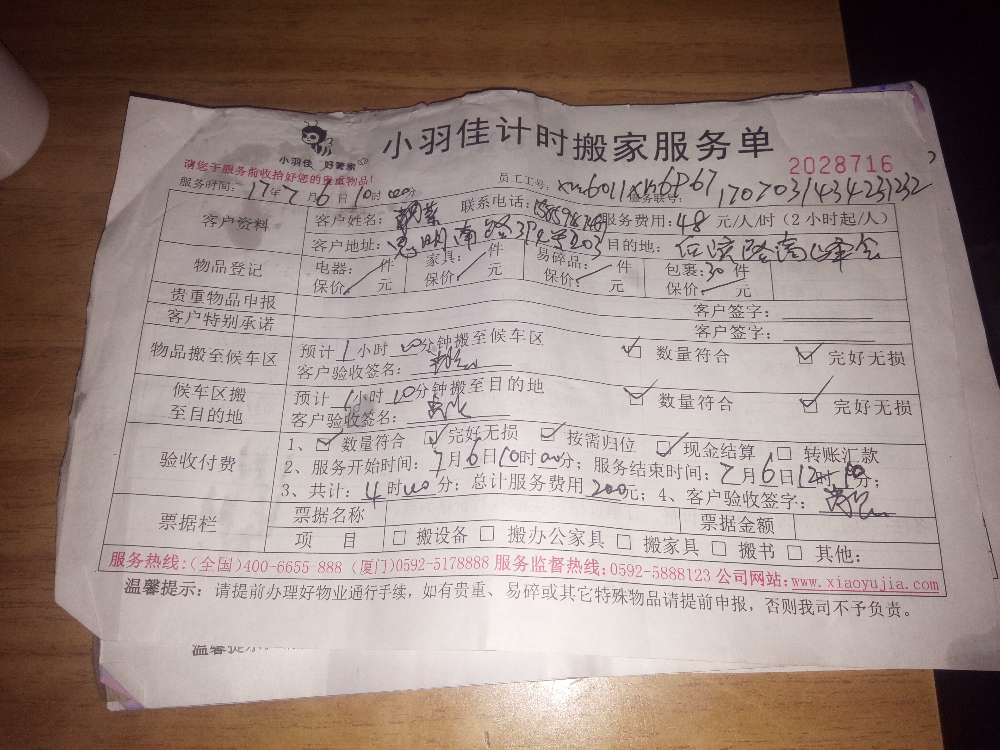 小羽佳计时搬家服务单
小羽佳 好管家
2028716
请您于服务前收拾好您的贵重物品!
服务时间: 17年7月6日10时00分 员工工号: xm6011 xm6867 服务联号: 170703143423232
客户资料 客户姓名: 联系电话: 服务费用: 48 元/人/时 (2小时起/人)
客户地址: 思明南路 203 目的地:
物品登记 电器: 件 家具: 件 易碎品: 件 包裹: 30 件
保价 元 保价 元 保价: 元 保价 元
贵重物品申报 客户签字:
客户特别承诺 客户签字:
物品搬至候车区 预计1小时00分钟搬至候车区 ☑ 数量符合 ☑ 完好无损
客户验收签名:
候车区搬至目的地 预计1小时10分钟搬至目的地 ☑ 数量符合 ☑ 完好无损
客户验收签名:
验收付费 1、☑ 数量符合 ☑ 完好无损 ☑ 按需归位 ☑ 现金结算 □ 转账汇款
2、服务开始时间: 7月6日10时00分; 服务结束时间: 7月6日12时10分;
3、共计: 4时00分; 总计服务费用 200元; 4、客户验收签字:
票据栏 票据名称 票据金额
项 目 □ 搬设备 □ 搬办公家具 □ 搬家具 □ 搬书 □ 其他:
服务热线:(全国)400-6655 888 (厦门)0592-5178888 服务监督热线:0592-5888123 公司网站:www.xiaoyujia.com
温馨提示: 请提前办理好物业通行手续, 如有贵重、易碎或其它特殊物品请提前申报, 否则我司不予负责。
温馨提示